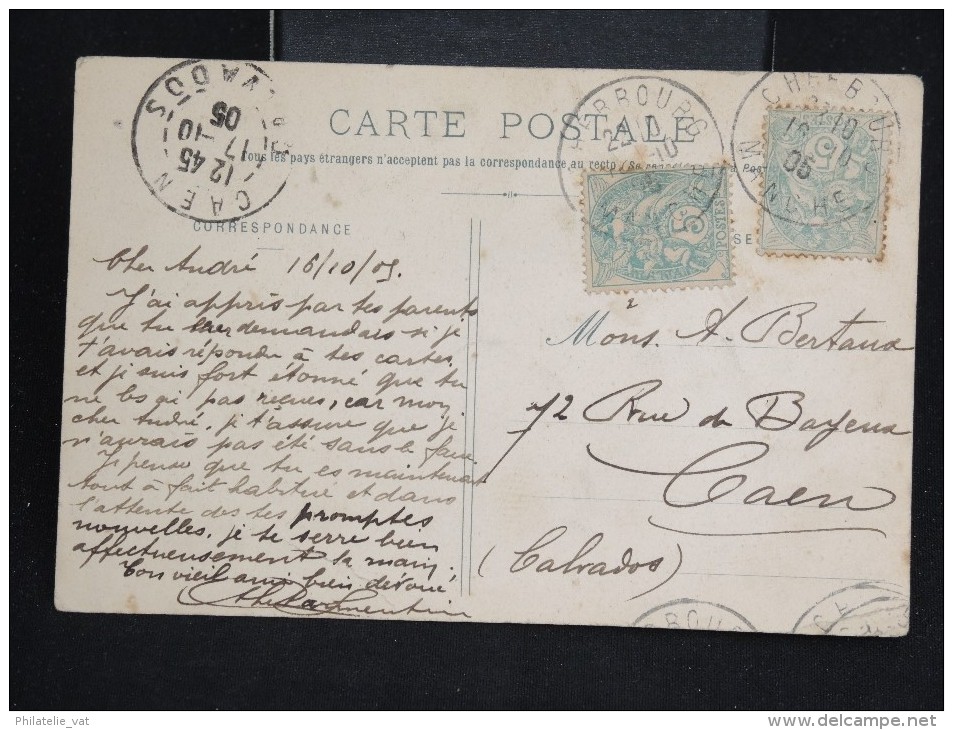 CARTE POSTALE
Tous les pays étrangers n'acceptent pas la correspondance au recto
CORRESPONDANCE
CAEN
12 45
17 -10
05
CALVADOS
CHERBOURG
CHERBOURG
MANCHE
5
POSTES
5
Cher André 16/10/05.
J'ai appris par tes parents
que tu leur demandais si je
t'avais répondu à tes cartes,
et je suis fort étonné que tu
ne les ai pas reçues, car moi,
cher André, je t'assure que je
n'aurais pas été sans le faire.
Je pense que tu es maintenant
tout à fait habitué et dans
l'attente des tes promptes
nouvelles, je te serre bien
affectueusement la main.
Ton vieil ami bien dévoué
Mons. A. Bertaux
72 Rue de Bayeux
Caen
(Calvados)
Philatelie_vat
www.delcampe.net